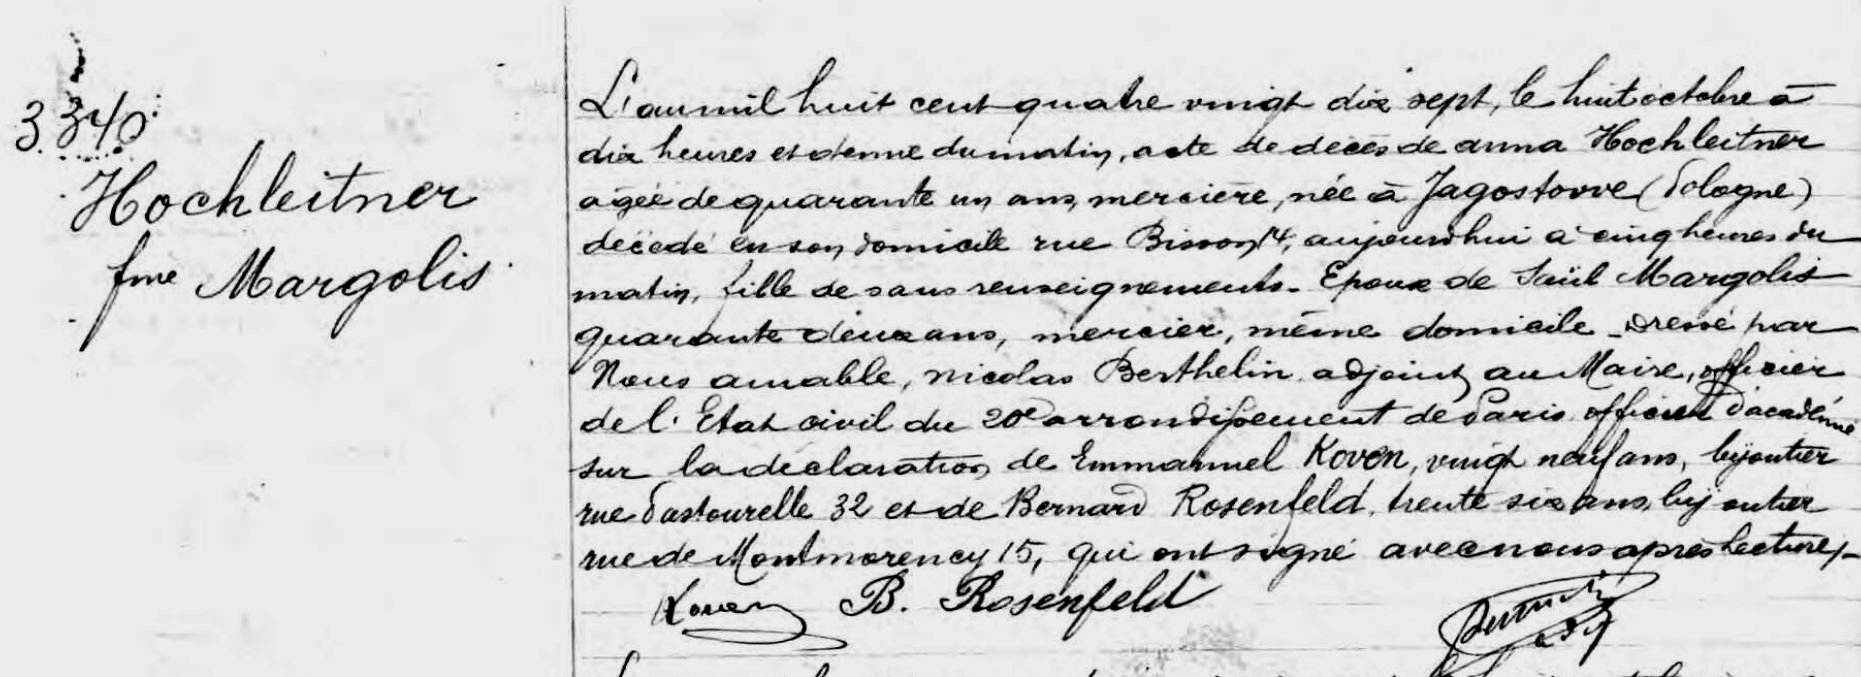 3340
Hochleitner
fme Margolis
L'an mil huit cent quatre vingt dix sept, le huit octobre à
dix heures et demie du matin, acte de décès de anna Hochleitner
agée de quarante un ans, mercière, née à Jagostovve (Pologne)
décédé en son domicile rue Bisson 14, aujourd'hui à cinq heures du
matin, fille de sans renseignements - Epouse de Saül Margolis
quarante deux ans, mercier, même domicile - Dressé par
Nous amable, nicolas Berthelin adjoint au Maire, officier
de l'Etat civil du 20e arrondissement de Paris officier d'académie
sur la déclaration de Emmanuel Koven, vingt neuf ans, bijoutier
rue Pastourelle 32 et de Bernard Rosenfeld, trente six ans, bijoutier
rue de Montmorency 15, qui ont signé avec nous après lecture, -
Koven B. Rosenfeld